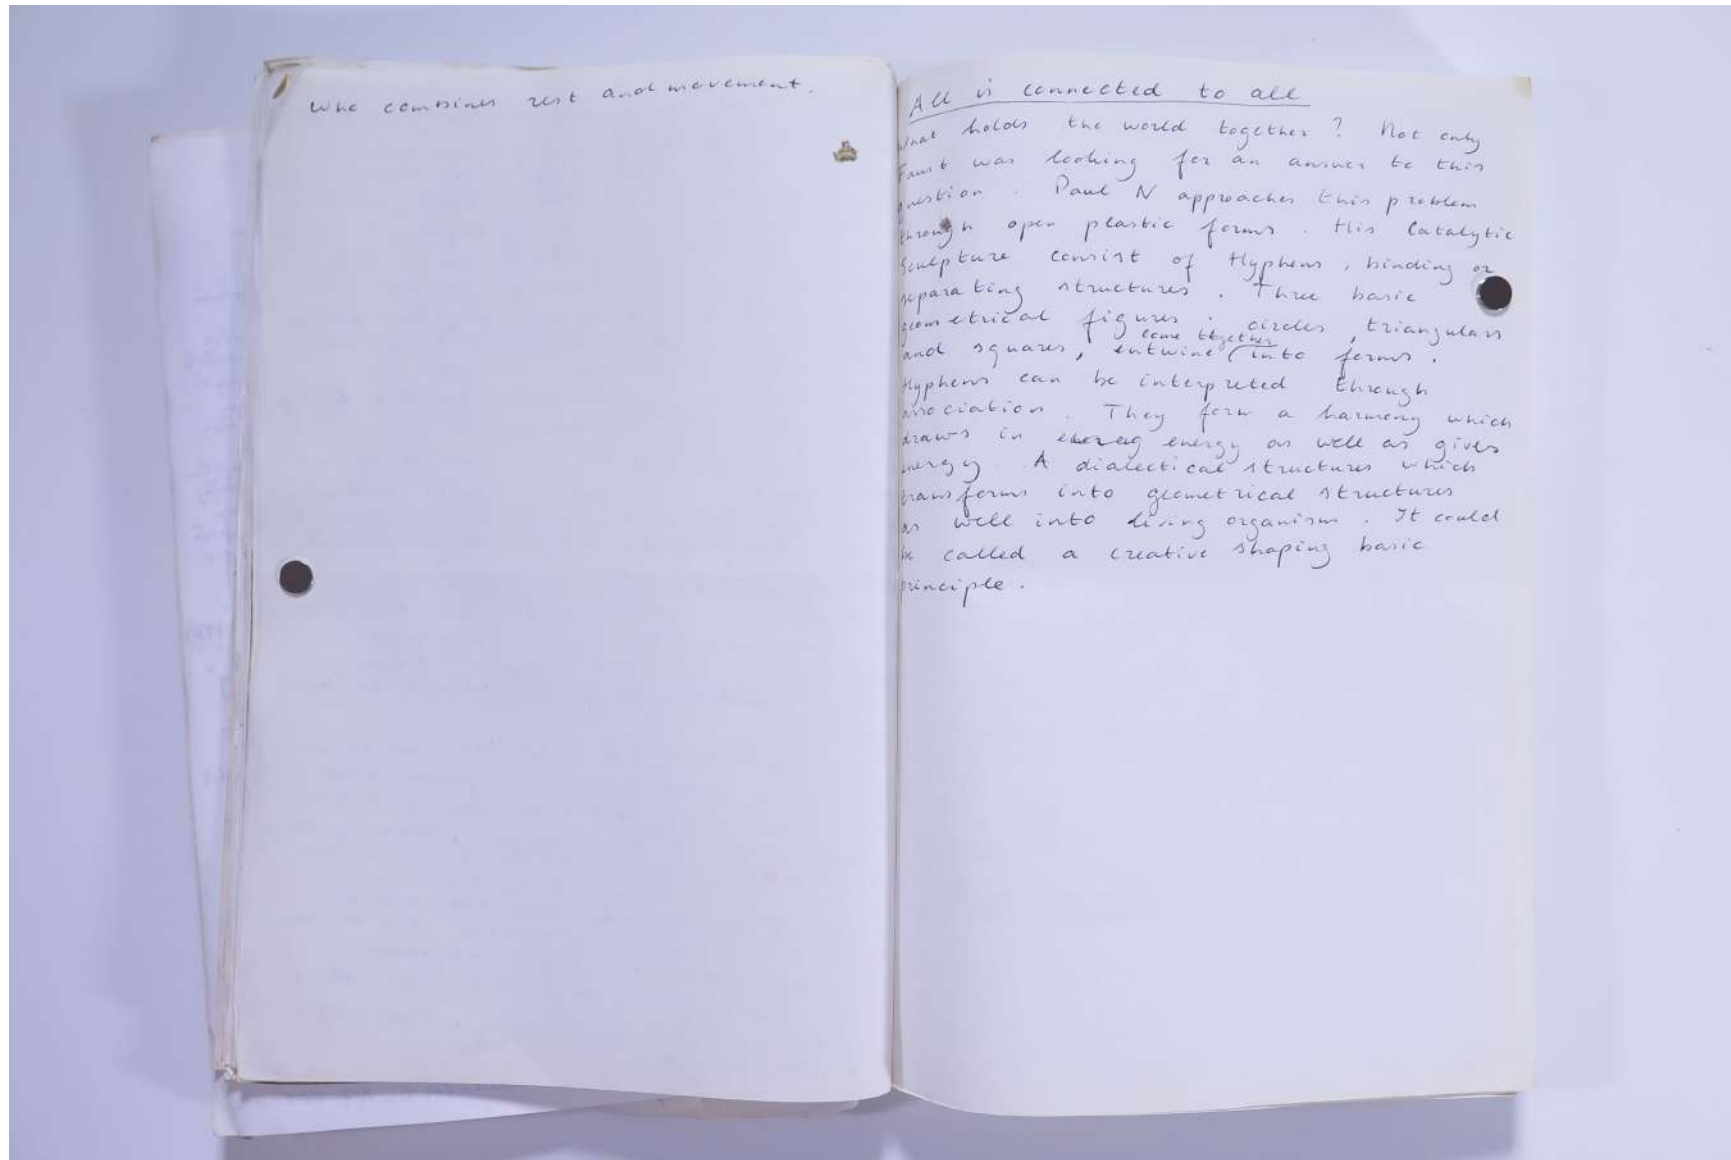 who combines rest and movement.
All is connected to all
What holds the world together? Not only
Faust was looking for an answer to this
question. Paul N approaches this problem
through open plastic forms. His Catalytic
Sculpture consist of Hyphens, binding or
separating structures. Three basic
geometrical figures: circles, triangulars
come together
and squares, entwine into forms.
Hyphens can be interpreted through
association. They form a harmony which
draws in energy as well as gives
energy. A dialectical structures which
transforms into geometrical structures
as well into living organism. It could
be called a creative shaping basic
principle.